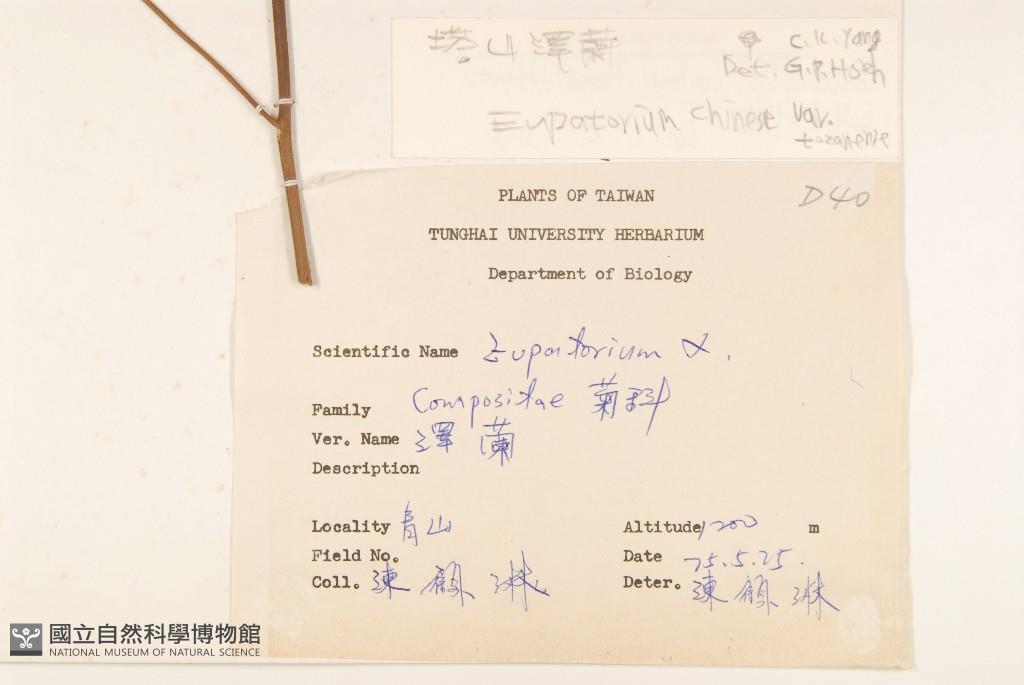 塔山澤蘭
C.K. Yang
Det. G.P. Hsieh
Eupatorium chinese var.
tozanense
PLANTS OF TAIWAN
D40
TUNGHAI UNIVERSITY HERBARIUM
Department of Biology
Scientific Name Eupatorium
Family Compositae 菊科
Ver. Name 澤蘭
Description
Locality 青山 Altitude 1200 m
Field No. Date 75.5.25.
Coll. 陳 淋 Deter. 陳 淋
國立自然科學博物館
NATIONAL MUSEUM OF NATURAL SCIENCE